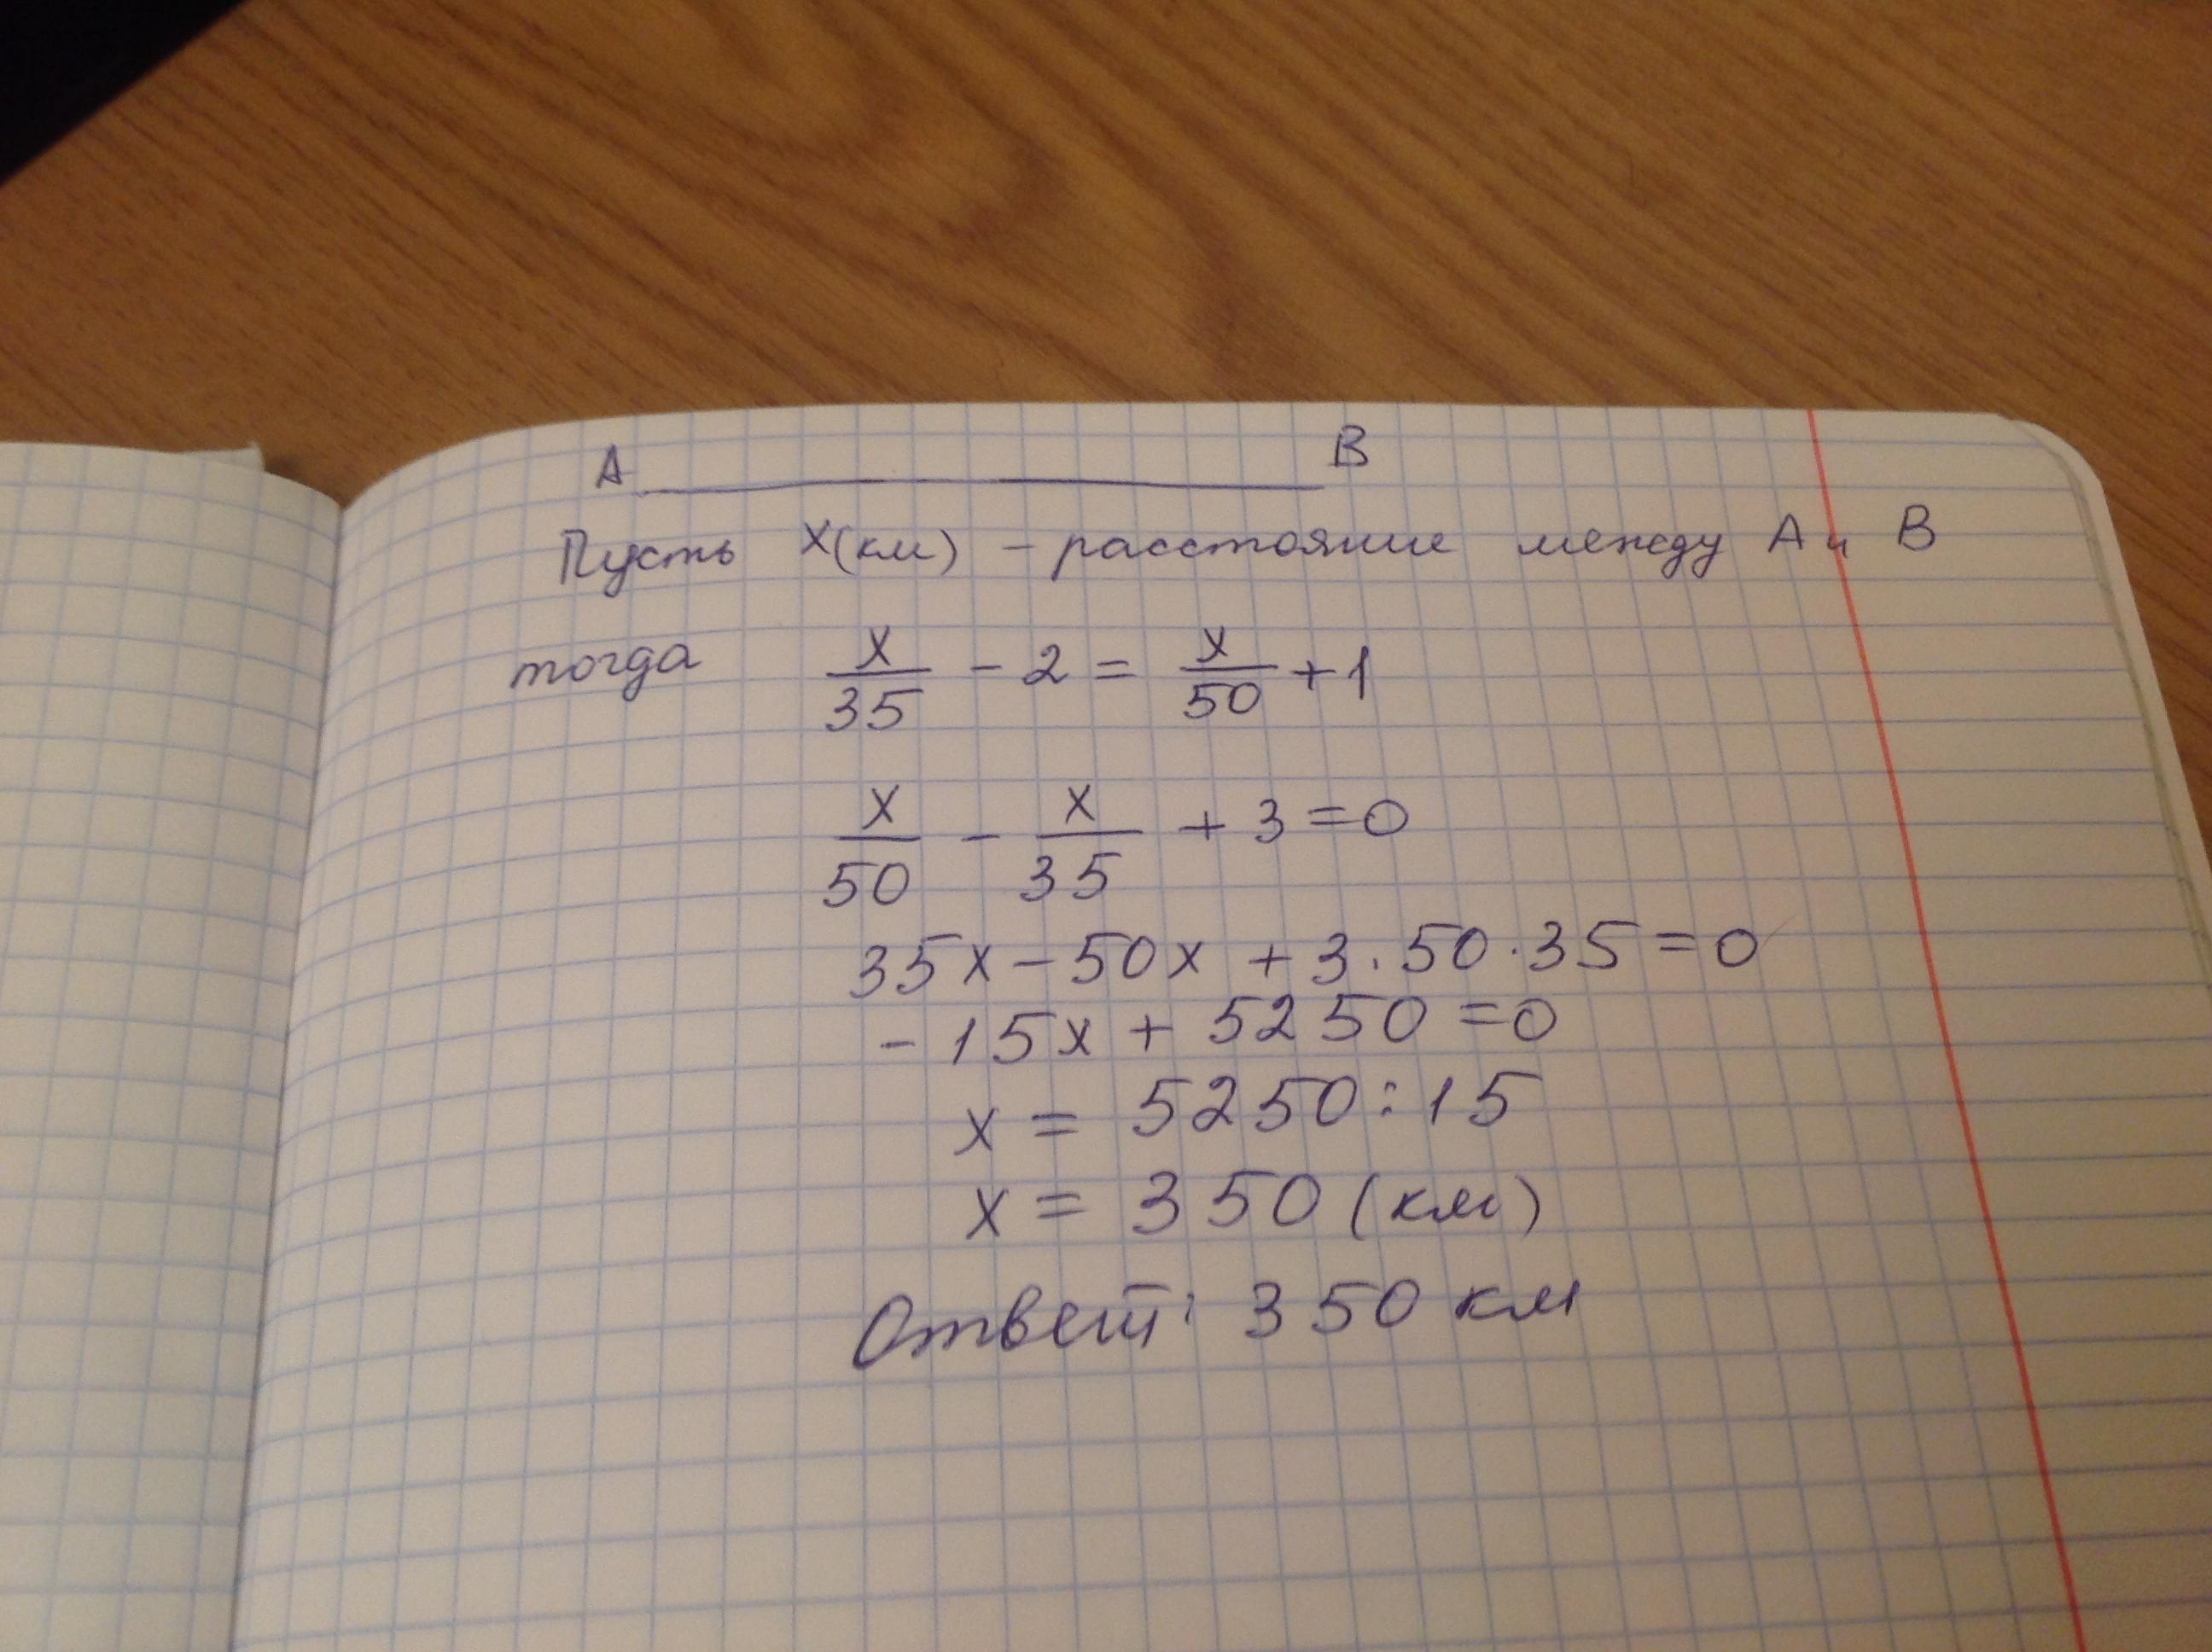 A B
Пусть x(км) - расстояние между A и B
тогда x/35 - 2 = x/50 + 1
x/50 - x/35 + 3 = 0
35x - 50x + 3 · 50 · 35 = 0
- 15x + 5250 = 0
x = 5250 : 15
x = 350 (км)
Ответ: 350 км